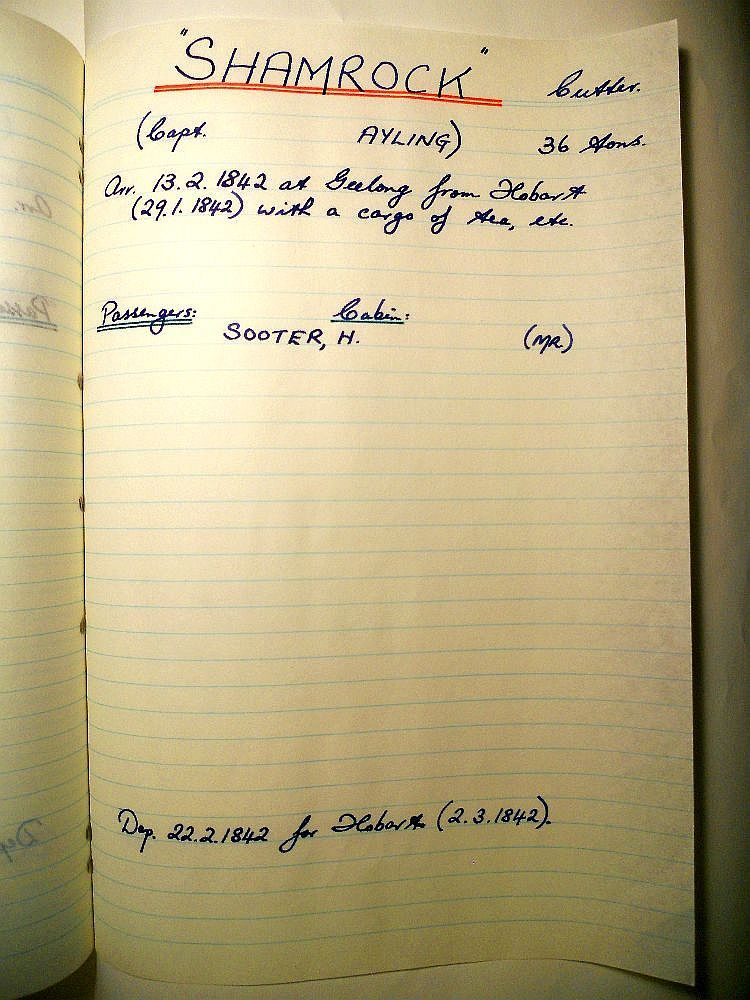 "SHAMROCK" Cutter.
(Capt. AYLING) 36 tons.
Arr. 13.2.1842 at Geelong from Hobart
(29.1.1842) with a cargo of tea, etc.
Passengers: Cabin:
SOOTER, H. (MR)
Dep. 22.2.1842 for Hobart (2.3.1842).